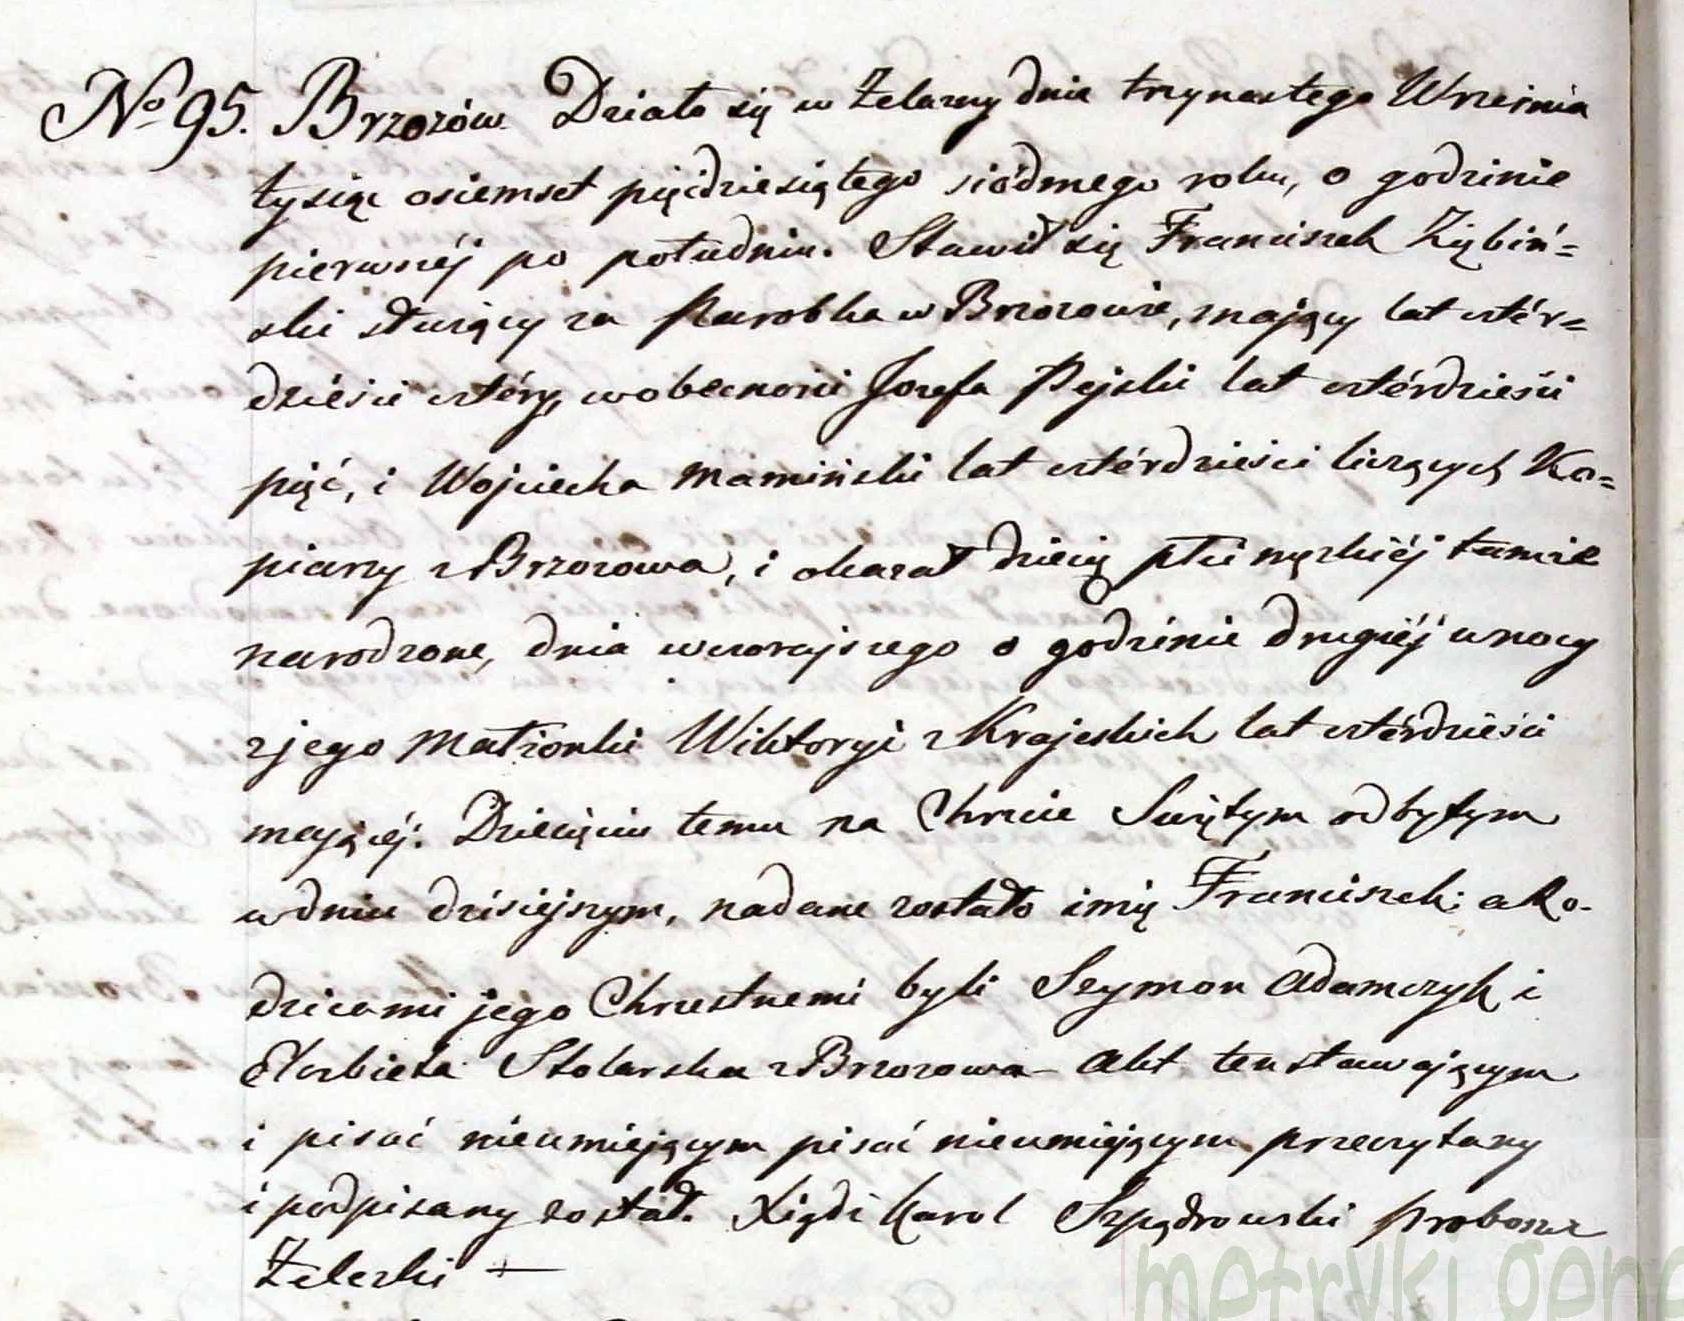 No 95. Brzozów. Działo się w Żelazny dnia trzynastego Września
tysiąc osiemset pięćdziesiątego siódmego roku, o godzinie
pierwszéj po południu. Stawił się Franciszek Ziębiń=
ski służący za Parobka w Brzozowie, mający lat cztér=
dzieści cztéry, w obecności Jozefa Pejski lat cztérdzieści
pięć, i Wojciecha Mamiński lat cztérdzieści liczących Ko=
piarzy z Brzozowa, i okazał dziecię płci męzkiéj tamże
narodzone, dnia wczorajszego o godzinie drugiéj w nocy
z jego Małżonki Wiktoryi z Krajeskich lat cztérdzieści
mającéj. Dziecięciu temu na Chrzcie Świętym odbytym
w dniu dzisiejszym, nadane zostało imię Franciszek; a Ro-
dzicami jego Chrzestnemi byli Szymon Adamczyk i
Elżbieta Stolarska z Brzozowa – Akt ten stawającym
i pisać nieumiejącym pisać nieumiejącym przeczytany
i podpisany został. Xiądz Karol Szpądrowski Proboszcz
Żelezki —
metryki gene